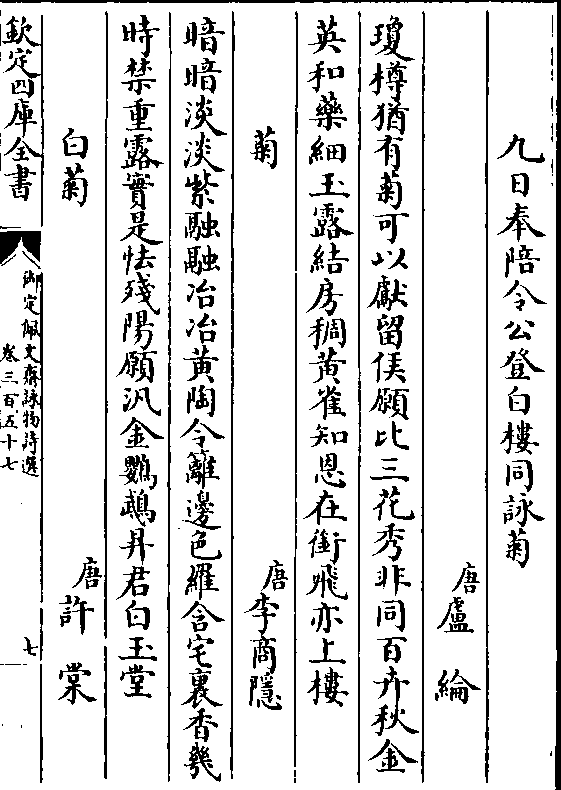 九日奉陪令公登白樓同詠菊
唐盧綸
瓊樽猶有菊可以獻留侯願比三花秀非同百卉秋金
英和藥細玉露結房稠黄雀知恩在銜飛亦上樓
菊
唐李商隱
暗暗淡淡紫融融冶冶黄陶令籬邊色羅含宅裏香幾
時禁重露實是怯殘陽願汎金鸚鵡昇君白玉堂
白菊
唐許棠
欽定四庫全書
御定佩文齋詠物詩選
卷三百五十七
七